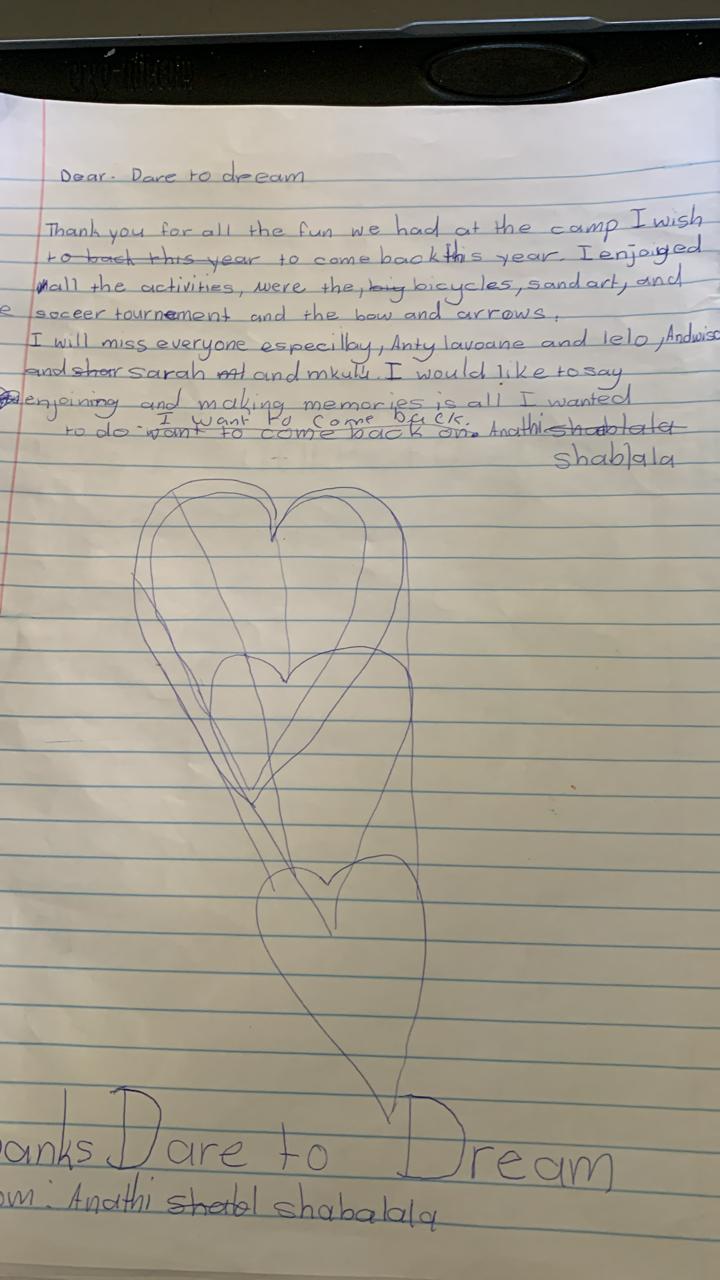 Dear. Dare to dream
Thank you for all the fun we had at the camp I wish
to back this year to come back this year. I enjoiged
all the activities, were the, big bicycles, sand art, and
soceer tournement and the bow and arrows.
I will miss everyone especilby, Anty lavoane and lelo, Andwisc
and shar sarah and mkulu. I would like to say
enjoining and making memories is all I wanted
I want to come back.
to do want to come back on. Anathi shablala
shablala
anks Dare to Dream
om: Anathi shabl shabalala